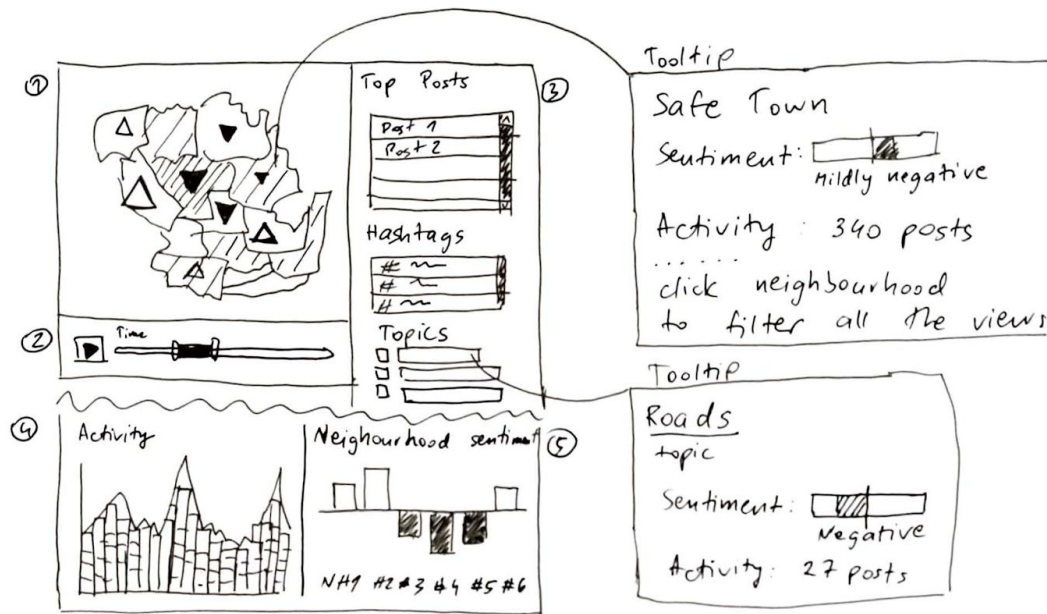 ①
Top Posts
Post 1
Post 2
③
Hashtags
#
#
#
②
Time
Topics
④
Activity
Neighourhood sentiment
⑤
NH1 #2 #3 #4 #5 #6
Tooltip
Safe Town
Sentiment:
Mildly negative
Activity : 340 posts
.......
click neighbourhood
to filter all the views
Tooltip
Roads
topic
Sentiment:
Negative
Activity: 27 posts